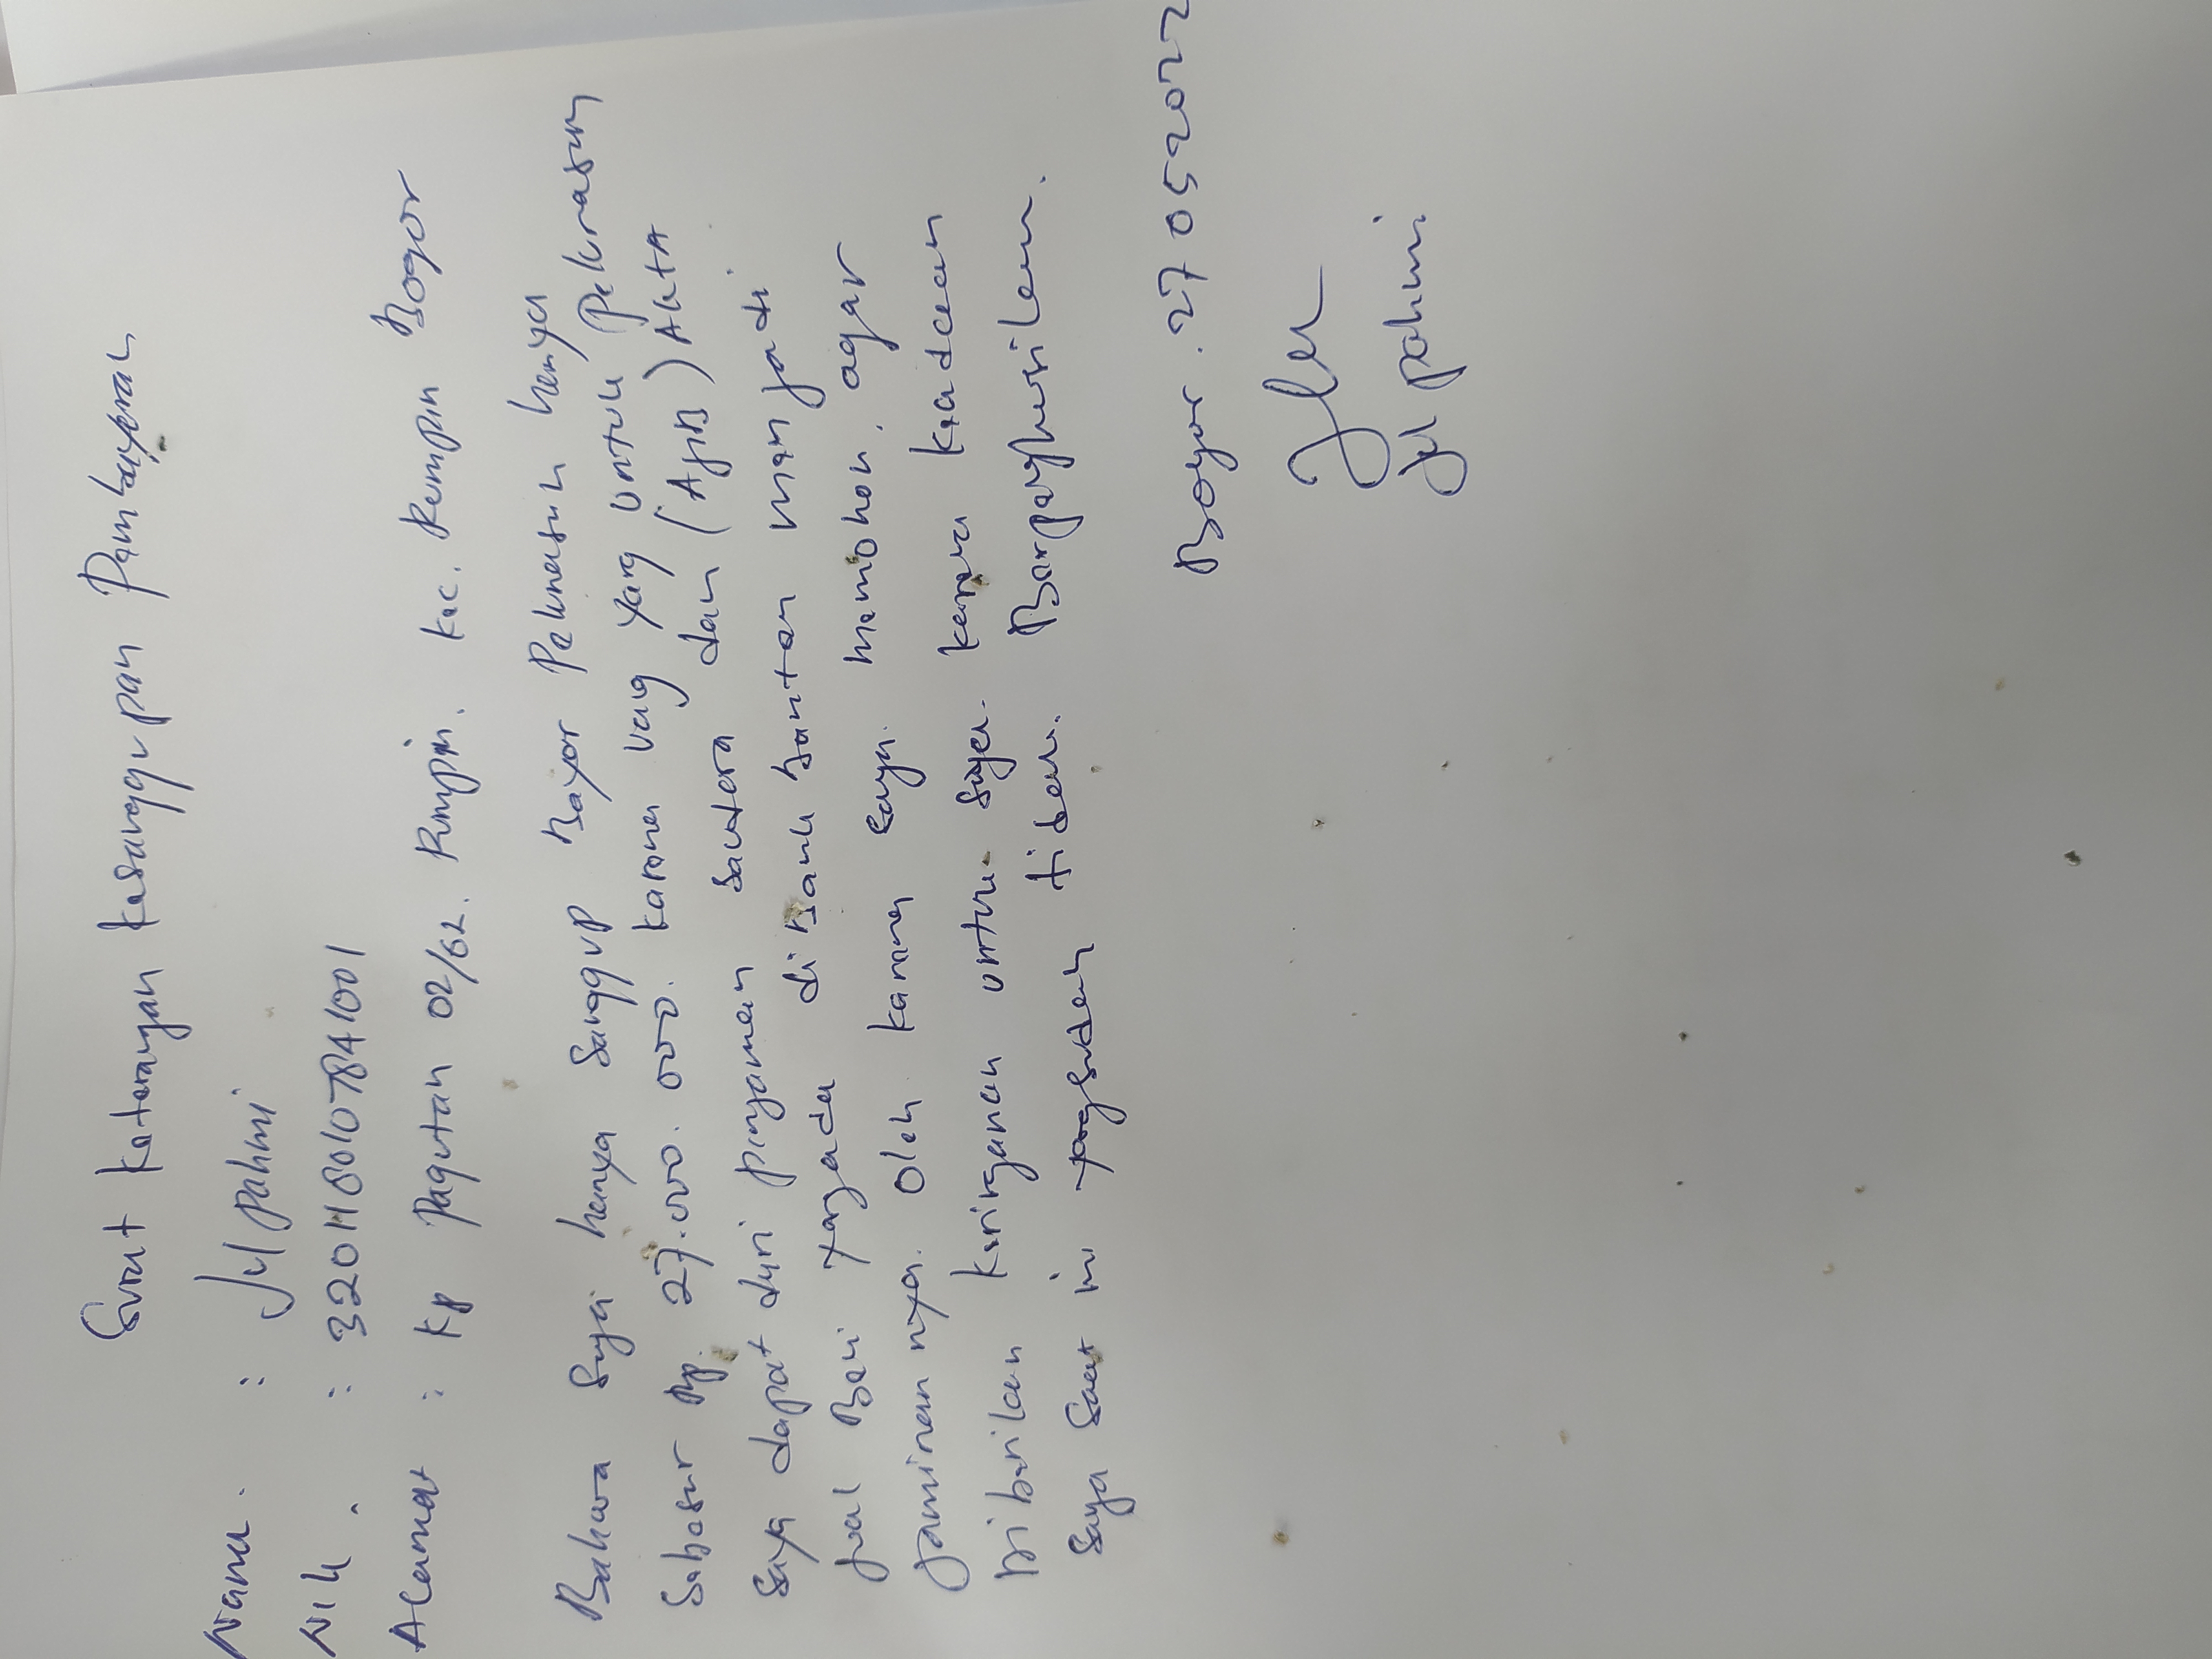 Surat keterangan kesanggupan Pembayaran
Nama . : Jul pahmi
Nik . : 3201180107841001
Alamat : Kp Pagutan 02/02. Rumpin. Kec. Rumpin Bogor
Bahwa Saya hanya Sanggup Bayar Pelunasan hanya
Sebesar Rp. 27.000.000. karena uang yang untuk pelunasan
Saya dapat dari pinjaman Saudara dan (AJB) AKTA
Jual Beli yangada di Bank Banten menjadi
jaminan nya. Oleh karena saya. memohon. agar
Di berikan keringanan untuk saya. karena keadaan
Saya Saat ini yangsudah tidak. Berpenghasilan.
Bogor . 27 05 2022
Jul pahmi